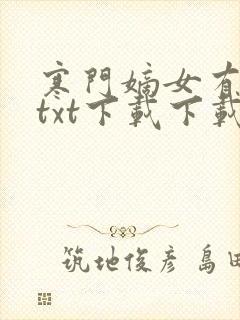 寒門嫡女有
txt下載下載
筑地俊彦 島田